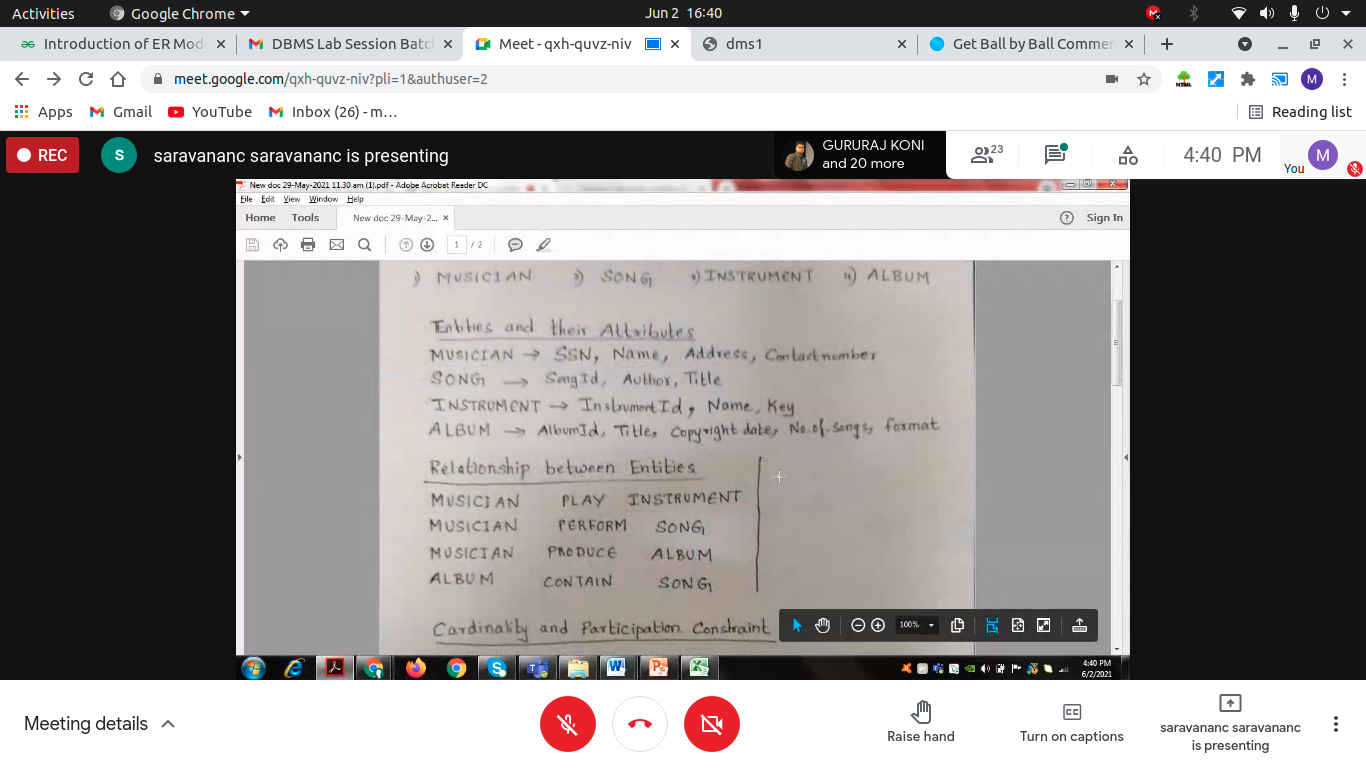 Activities Google Chrome Jun 2 16:40
Introduction of ER Mode DBMS Lab Session Batc Meet - qxh-quvz-niv dms1 Get Ball by Ball Commen
meet.google.com/qxh-quvz-niv?pli=1&authuser=2 M
Apps Gmail YouTube Inbox (26) - m… Reading list
REC S saravananc saravananc is presenting GURURAJ KONI and 20 more 23 4:40 PM You M
New doc 29-May-2021 11.30 am (1).pdf - Adobe Acrobat Reader DC
File Edit View Window Help
Home Tools New doc 29-May-2... Sign In
1 / 2
1) MUSICIAN 2) SONG 3) INSTRUMENT 4) ALBUM
Entities and their Attributes
MUSICIAN → SSN, Name, Address, Contact number
SONG → SongId, Author, Title
INSTRUMENT → InstrumentId, Name, Key
ALBUM → AlbumId, Title, Copyright date, No.of.songs, format
Relationship between Entities
MUSICIAN PLAY INSTRUMENT
MUSICIAN PERFORM SONG
MUSICIAN PRODUCE ALBUM
ALBUM CONTAIN SONG
Cardinality and Participation Constraint
100%
4:40 PM
6/2/2021
Meeting details
Raise hand
Turn on captions
saravananc saravananc
is presenting